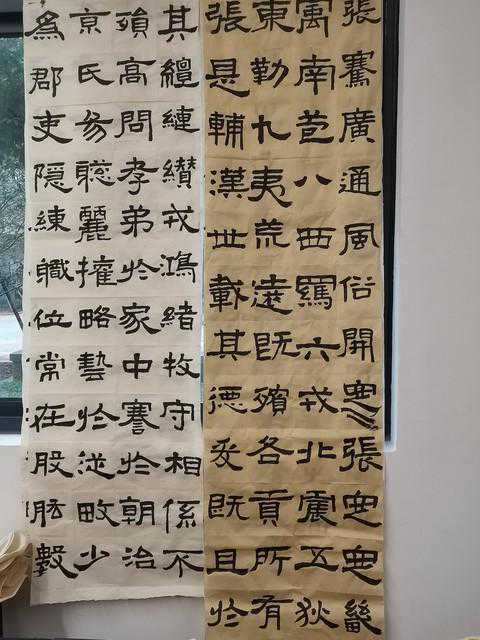 張騫廣通風俗開張畿
寓南苞八西羈六戎北震五狄
東勤九夷荒遠既殯各貢所有
張是輔漢世載其德爰既且於
其繵縺纘戎鴻緒牧守相係不
殞高問孝弟於家中謇於朝治
京氏易聰麗權略藝於從畋少
為郡吏隱練職位常在股肱數